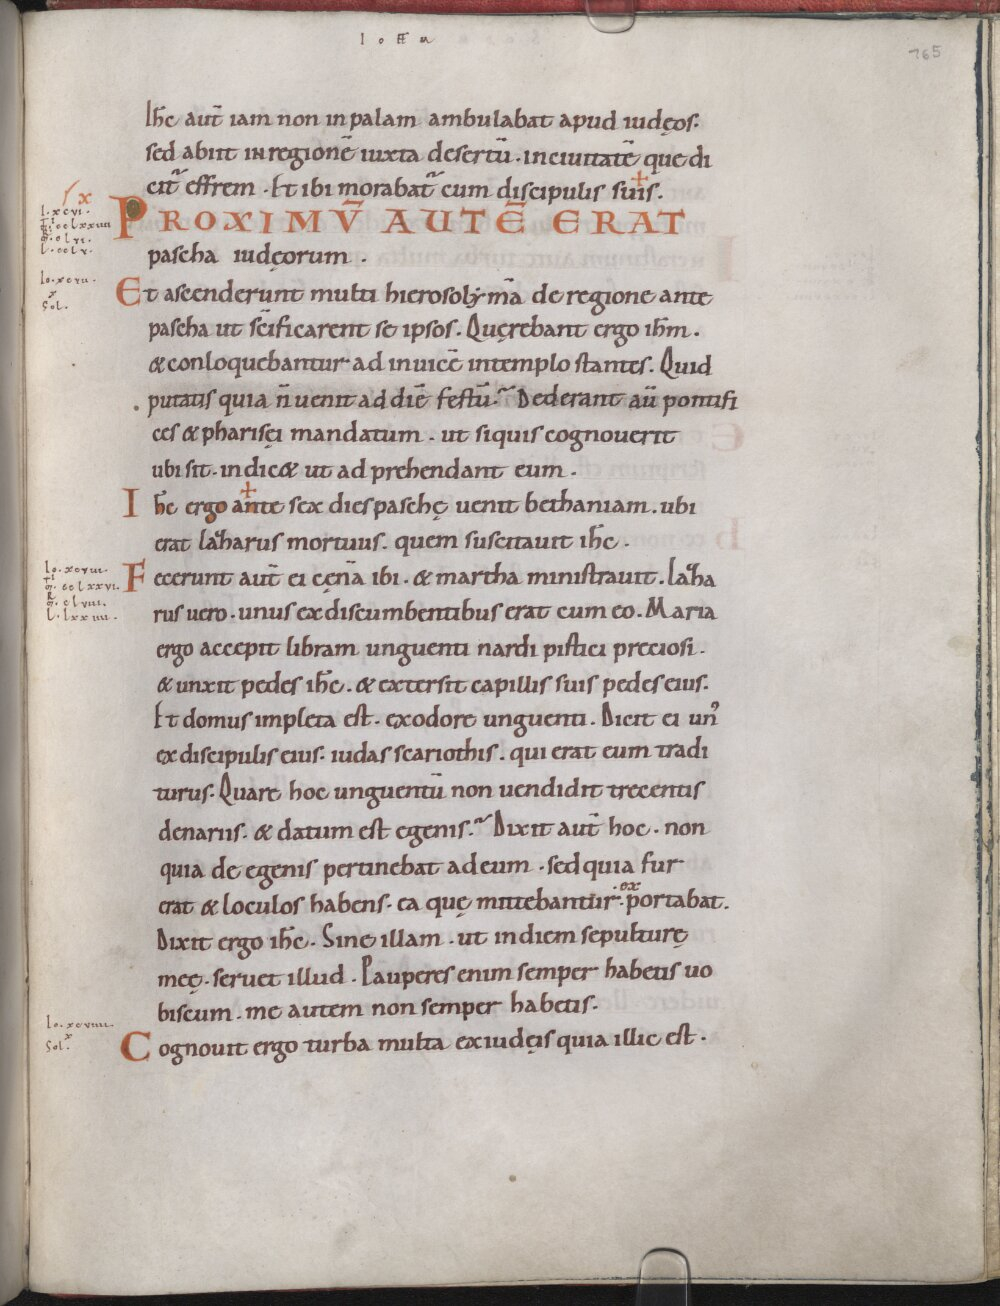 IOHAN
165
Ihc aut̄ iam non in palam ambulabat apud iudęos.
sed abiit in regionē iuxta desertū. in ciuitatē que di
cit᷑ effrem. Et ibi morabat᷑ cum discipulis suis.
x
PROXIMV̄ AUTĒ ERAT
l. xcvi.
cclxxiiii
clvi.
l. cclv.
pascha iudęorum.
Io. xcvii.
x
Sol.
Et ascenderunt multi hierosolẏmā de regione ante
pascha ut sc̄ificarent se ipsos. Quęrebant ergo ih̄m.
& conloquebantur ad inuicē in templo stantes. Quid
putatis quia n̄ uenit ad diē festū. Dederant aū pontifi
ces & pharisęi mandatum. ut siquis cognouerit
ubi sit. indic& ut adprehendant eum.
Ih̄c ergo ante sex dies paschę uenit bethaniam. ubi
erat lazharus mortuus. quem suscitauit ih̄c.
Io. xcviii.
cclxxvi.
clviii.
l. lxxiiii.
Fecerunt aut̄ ei cęnā ibi. & martha ministrauit. lazha
rus uero. unus ex discumbentibus erat cum eo. Maria
ergo accepit libram unguenti nardi pistici preciosi.
& unxit pedes ih̄c. & extersit capillis suis pedes eius.
Et domus impleta est. ex odore unguenti. Dicit ei unꝰ
ex discipulis eius. iudas scariothis. qui erat eum tradi
turus. Quare hoc unguentū non uendidit trecentis
denariis. & datum est egenis. Dixit aut̄ hoc. non
quia de egenis pertinebat ad eum. sed quia fur
erat & loculos habens. ea quę mittebantur. exportabat.
Dixit ergo ih̄c. Sine illam. ut in diem sepulturę
meę. seruet illud. Pauperes enim semper habetis uo
biscum. me autem non semper habetis.
Io. xcviiii.
x
Sol.
Cognouit ergo turba multa ex iudęis quia illic est.